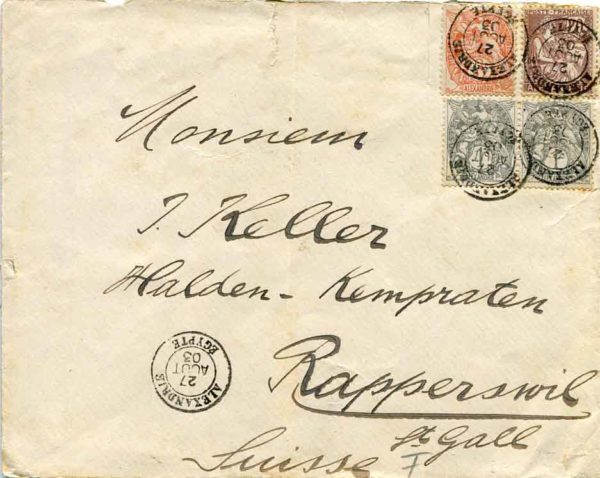 Monsieur
J. Keller
Halden - Kempraten
Rapperswil
St Gall
Suisse
ALEXANDRIE
27
AOUT
03
EGYPTE
POSTE FRANÇAISE
ALEXANDRIE
27
AOUT
03
EGYPTE
ALEXANDRIE